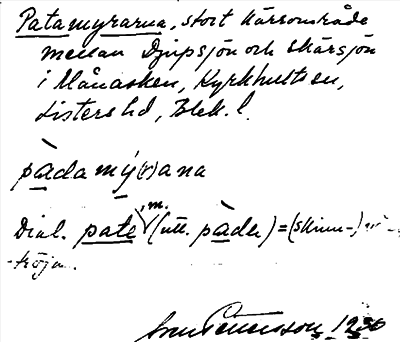 Patamyrarna, stort kärrområde
mellan Djupsjön och Skärsjön
i Månasken, Kyrkhults sn,
Listers hd, Blek. l.
pàdamý(r)ana
Dial. pate, m. (utt. pàder) = (skinn-)
-tröja.
Sven Pettersson 1930